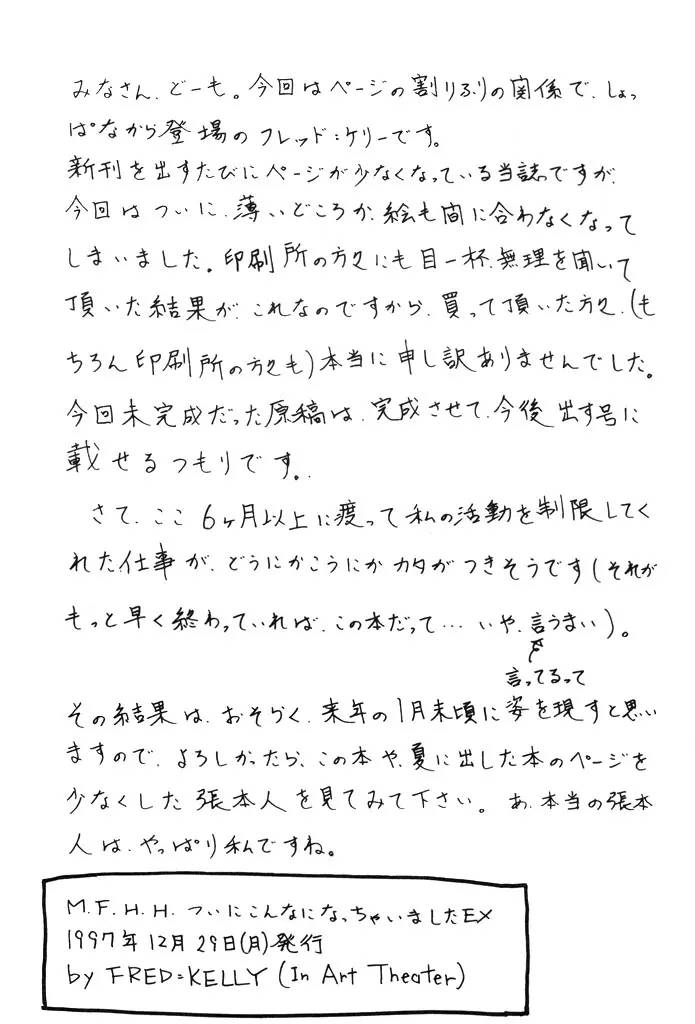 みなさん、どーも。今回はページの割りふりの関係で、しょっ
ぱなから登場のフレッド=ケリーです。
新刊を出すたびにページが少なくなっている当誌ですが、
今回はついに、薄いどころか、絵も間に合わなくなって
しまいました。印刷所の方々にも目一杯、無理を聞いて
頂いた結果が、これなのですから、買って頂いた方々、(も
ちろん印刷所の方々も)本当に申し訳ありませんでした。
今回未完成だった原稿は、完成させて、今後出す号に
載せるつもりです。
さて、ここ6ヶ月以上に渡って私の活動を制限してく
れた仕事が、どうにかこうにかカタがつきそうです(それが
もっと早く終わっていれば、この本だって…いや、言うまい)。
言ってるって
その結果は、おそらく、来年の1月末頃に姿を現すと思い
ますので、よろしかったら、この本や、夏に出した本のページを
少なくした張本人を見てみて下さい。あ、本当の張本
人は、やっぱり私ですね。
M.F.H.H. ついにこんなになっちゃいましたEX
1997年12月29日(月)発行
by FRED=KELLY (In Art Theater)